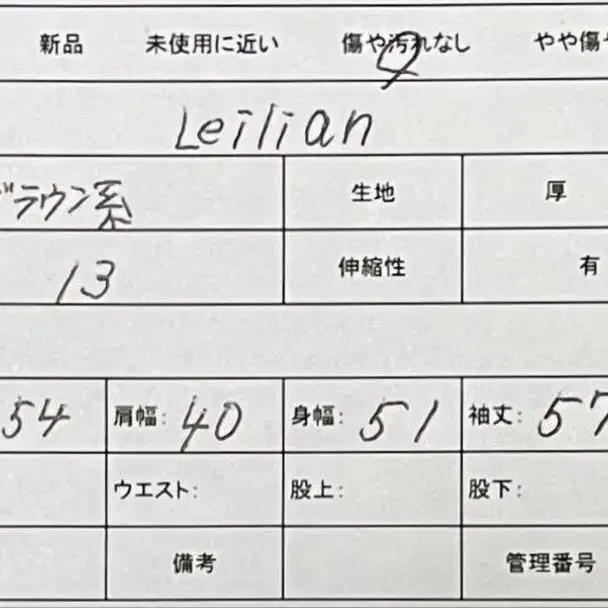 新品 未使用に近い 傷や汚れなし やや傷や
Leilian
ブラウン系 生地 厚
13 伸縮性 有
54 肩幅: 40 身幅: 51 袖丈: 57
ウエスト: 股上: 股下:
備考 管理番号